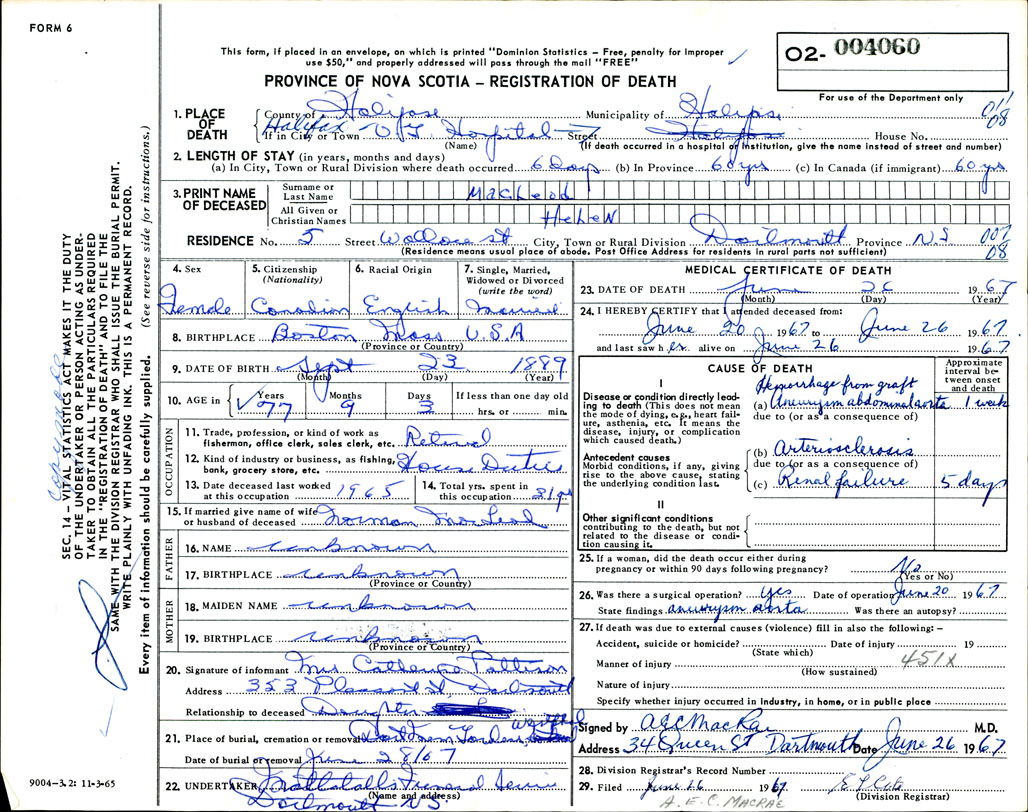 FORM 6
This form, if placed in an envelope, on which is printed "Dominion Statistics - Free, penalty for improper
use $50," and properly addressed will pass through the mail "FREE"
O2- 004060
PROVINCE OF NOVA SCOTIA - REGISTRATION OF DEATH
For use of the Department only
1. PLACE OF DEATH
County of Halifax Municipality of Halifax
011
08
If in City or Town Halifax V.G. Hospital Street House No.
(Name) (If death occurred in a hospital or institution, give the name instead of street and number)
2. LENGTH OF STAY (in years, months and days)
(a) In City, Town or Rural Division where death occurred 6 Days (b) In Province 60 yrs (c) In Canada (if immigrant) 60 yrs
3. PRINT NAME OF DECEASED
Surname or Last Name MacLeod
All Given or Christian Names HeLeN
RESIDENCE No. 5 Street Wallace St City, Town or Rural Division Dartmouth Province N.S
08
(Residence means usual place of abode. Post Office Address for residents in rural parts not sufficient)
4. Sex
Female
5. Citizenship (Nationality)
Canadian
6. Racial Origin
English
7. Single, Married, Widowed or Divorced (write the word)
Married
8. BIRTHPLACE Boston Mass U.S.A
(Province or Country)
9. DATE OF BIRTH Sept 23 1889
(Month) (Day) (Year)
10. AGE in Years 77 Months 9 Days 3 If less than one day old hrs. or min.
OCCUPATION
11. Trade, profession, or kind of work as fisherman, office clerk, sales clerk, etc. Retired
12. Kind of industry or business, as fishing, bank, grocery store, etc. House Duties
13. Date deceased last worked at this occupation 1965
14. Total yrs. spent in this occupation
15. If married give name of wife or husband of deceased Norman MacLeod
FATHER
16. NAME unknown
17. BIRTHPLACE unknown
(Province or Country)
MOTHER
18. MAIDEN NAME unknown
19. BIRTHPLACE unknown
(Province or Country)
20. Signature of informant Mrs Catherine Pattison
Address 353 Pleasant St Dartmouth
Relationship to deceased Daughter
21. Place of burial, cremation or removal
Date of burial or removal June 28/67
22. UNDERTAKER Funeral Service
(Name and address)
Dartmouth NS
MEDICAL CERTIFICATE OF DEATH
23. DATE OF DEATH June 26 1967
(Month) (Day) (Year)
24. I HEREBY CERTIFY that I attended deceased from:
June 20 1967 to June 26 1967
and last saw her alive on June 26 1967.
CAUSE OF DEATH
Approximate interval between onset and death
I
Disease or condition directly leading to death (This does not mean the mode of dying, e.g., heart failure, asthenia, etc. It means the disease, injury, or complication which caused death.)
Hemorrhage from graft
(a) Aneurysm abdominal aorta 1 week
due to (or as a consequence of)
Antecedent causes
Morbid conditions, if any, giving rise to the above cause, stating the underlying condition last.
(b) Arteriosclerosis
due to (or as a consequence of)
(c) Renal failure 5 days
II
Other significant conditions
contributing to the death, but not related to the disease or condition causing it.
25. If a woman, did the death occur either during pregnancy or within 90 days following pregnancy? No
(Yes or No)
26. Was there a surgical operation? yes Date of operation June 20 1967.
State findings aneurysm aorta Was there an autopsy?
27. If death was due to external causes (violence) fill in also the following: -
Accident, suicide or homicide? Date of injury 19
(State which)
Manner of injury 451X
(How sustained)
Nature of injury
Specify whether injury occurred in industry, in home, or in public place
Signed by AEC MacRae M.D.
Address 34 Queen St Dartmouth Date June 26 1967
28. Division Registrar's Record Number
29. Filed June 26 1967
(Division Registrar)
A.E.C. MACRAE
SEC. 14 - VITAL STATISTICS ACT MAKES IT THE DUTY
OF THE UNDERTAKER OR PERSON ACTING AS UNDER-
TAKER TO OBTAIN ALL THE PARTICULARS REQUIRED
IN THE "REGISTRATION OF DEATH" AND TO FILE THE
SAME WITH THE DIVISION REGISTRAR WHO SHALL ISSUE THE BURIAL PERMIT.
WRITE PLAINLY WITH UNFADING INK. THIS IS A PERMANENT RECORD.
Every item of information should be carefully supplied. (See reverse side for instructions.)
9004-3.2: 11-3-65